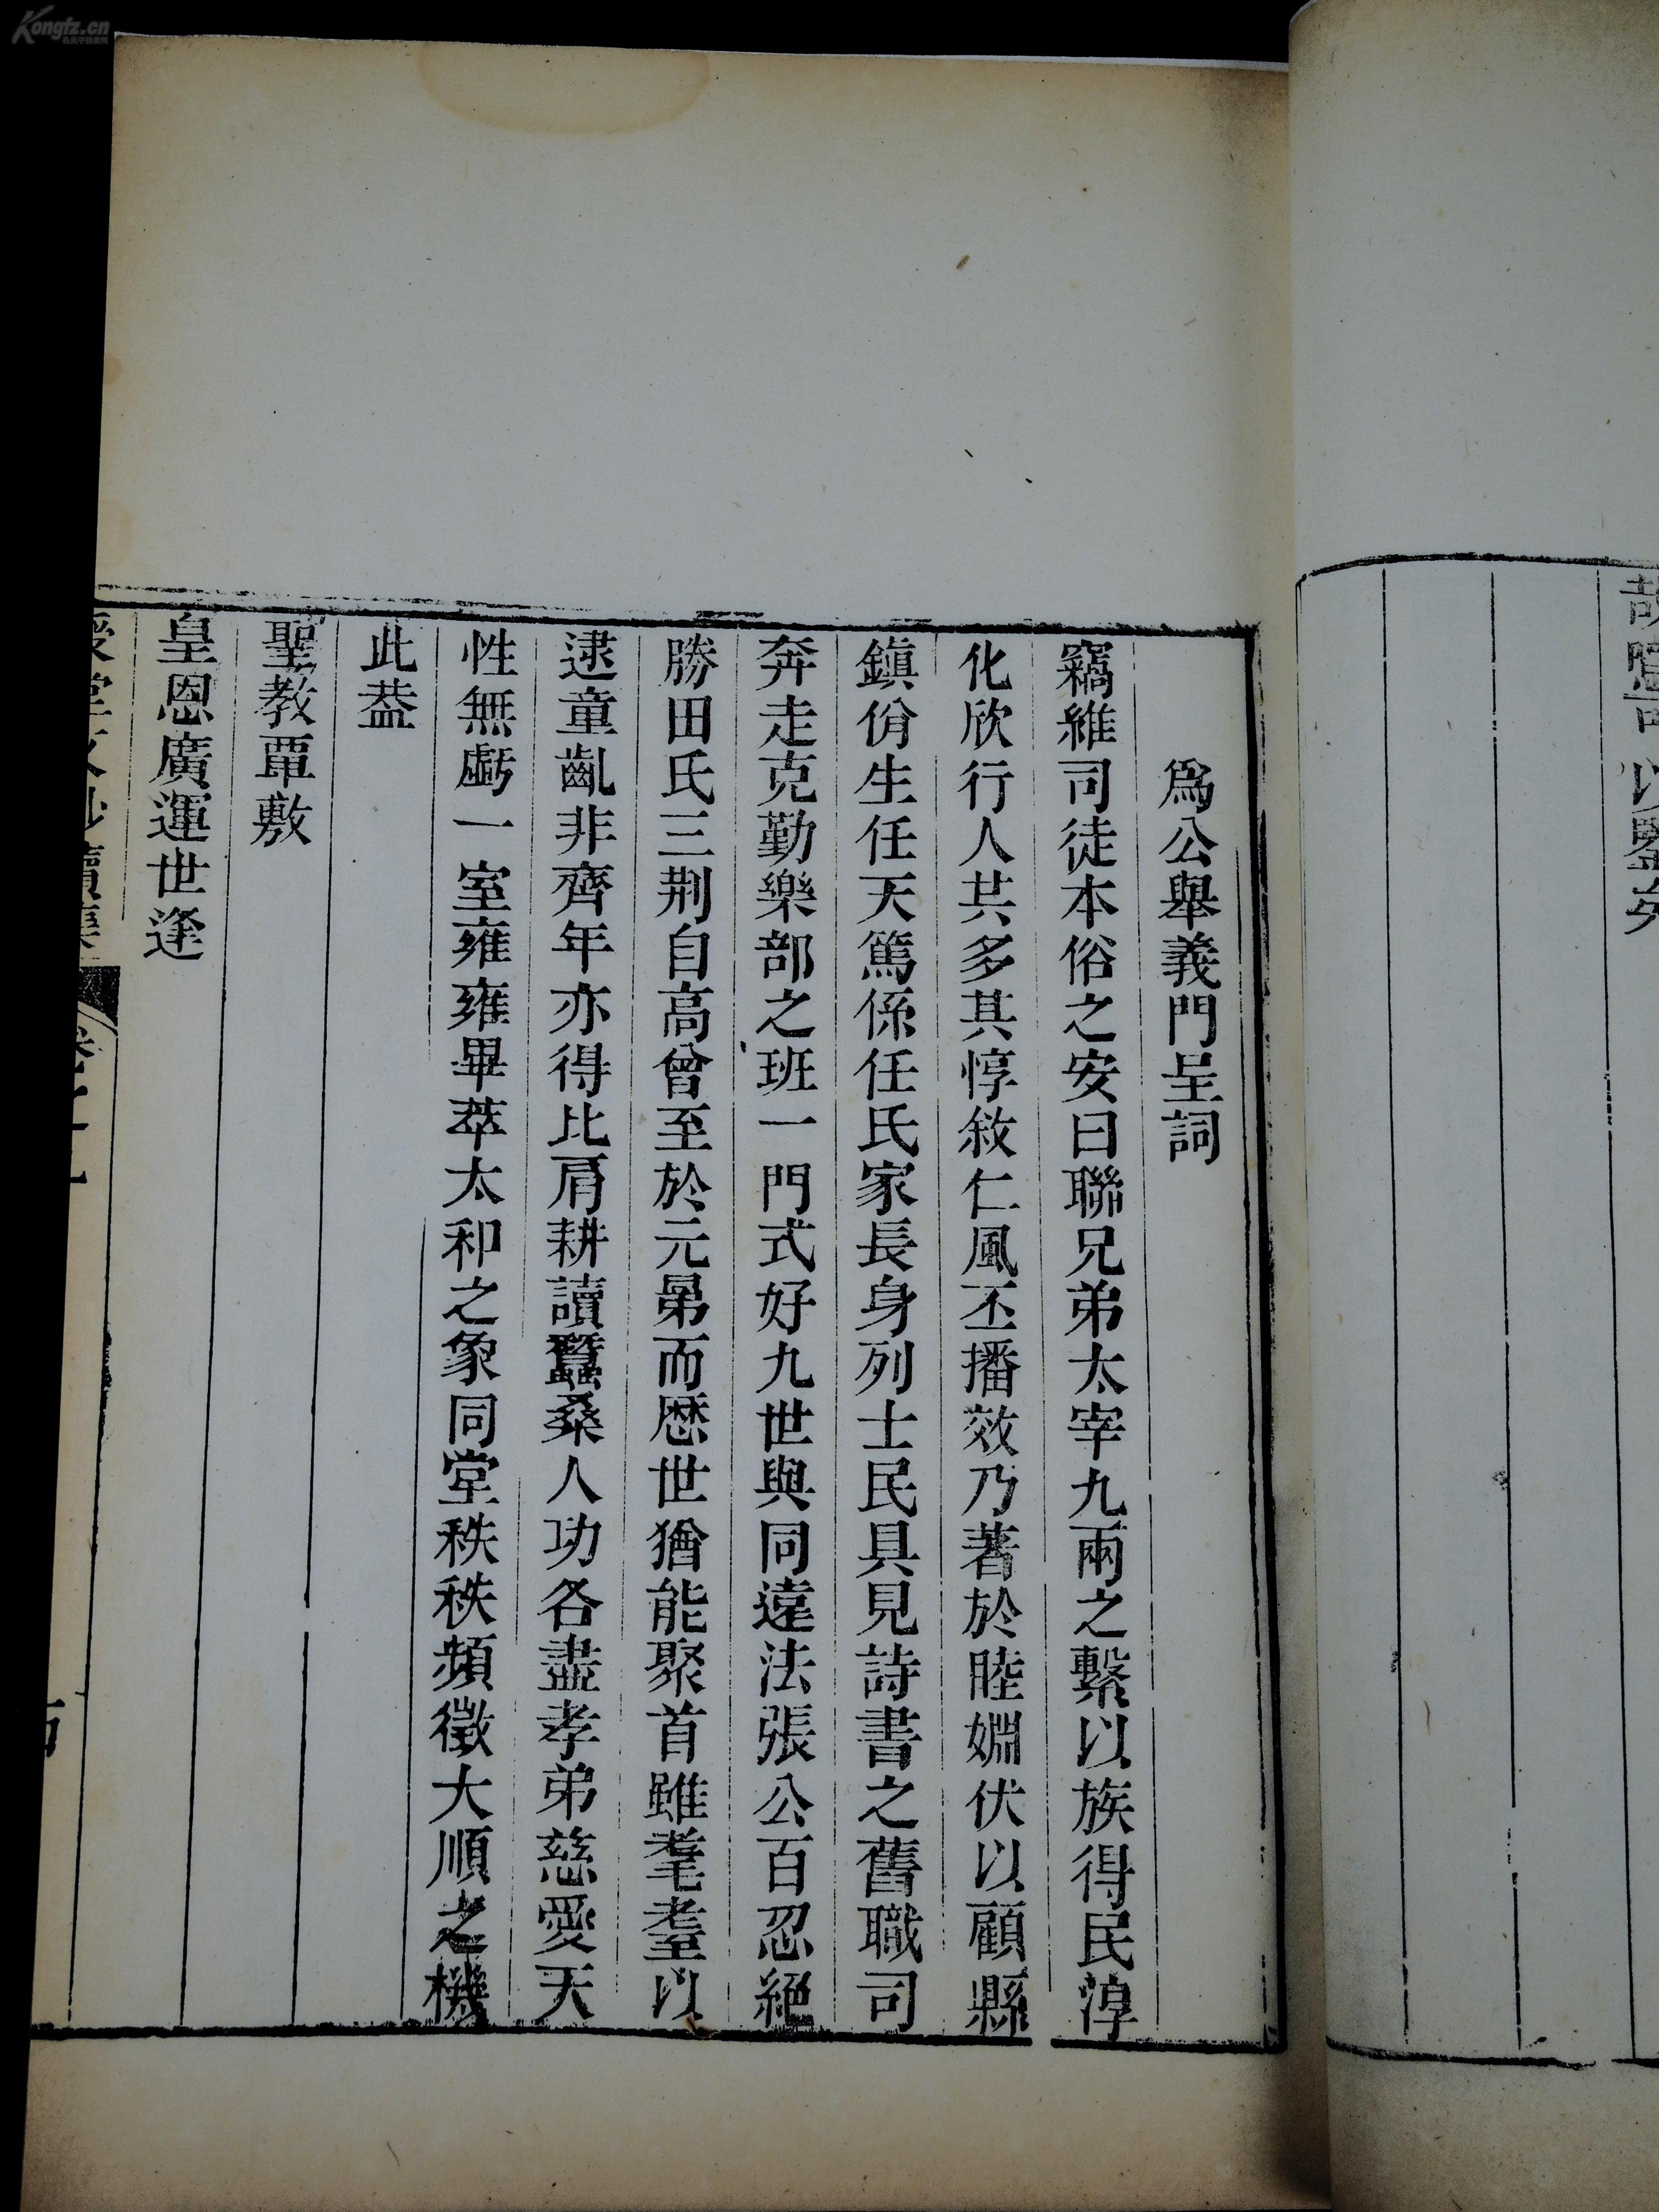 為公舉義門呈詞
竊維司徒本俗之安曰聯兄弟太宰九兩之繫以族得民淳
化欣行人共多其惇敘仁風丕播效乃著於睦婣伏以顧縣
鎮佾生任天篤係任氏家長身列士民具見詩書之舊職司
奔走克勤樂部之班一門式好九世與同遠法張公百忍絕
勝田氏三荆自高曾至於元晜而歷世猶能聚首雖耄耋以
逮童齓非齊年亦得比肩耕讀蠶桑人功各盡孝弟慈愛天
性無虧一室雍雍畢萃太和之象同堂秩秩頻徵大順之機
此葢
聖教覃敷
皇恩廣運世逢
Kongfz.cn